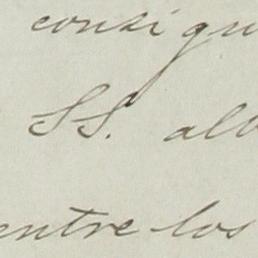 consigu
SS. alb
entre los